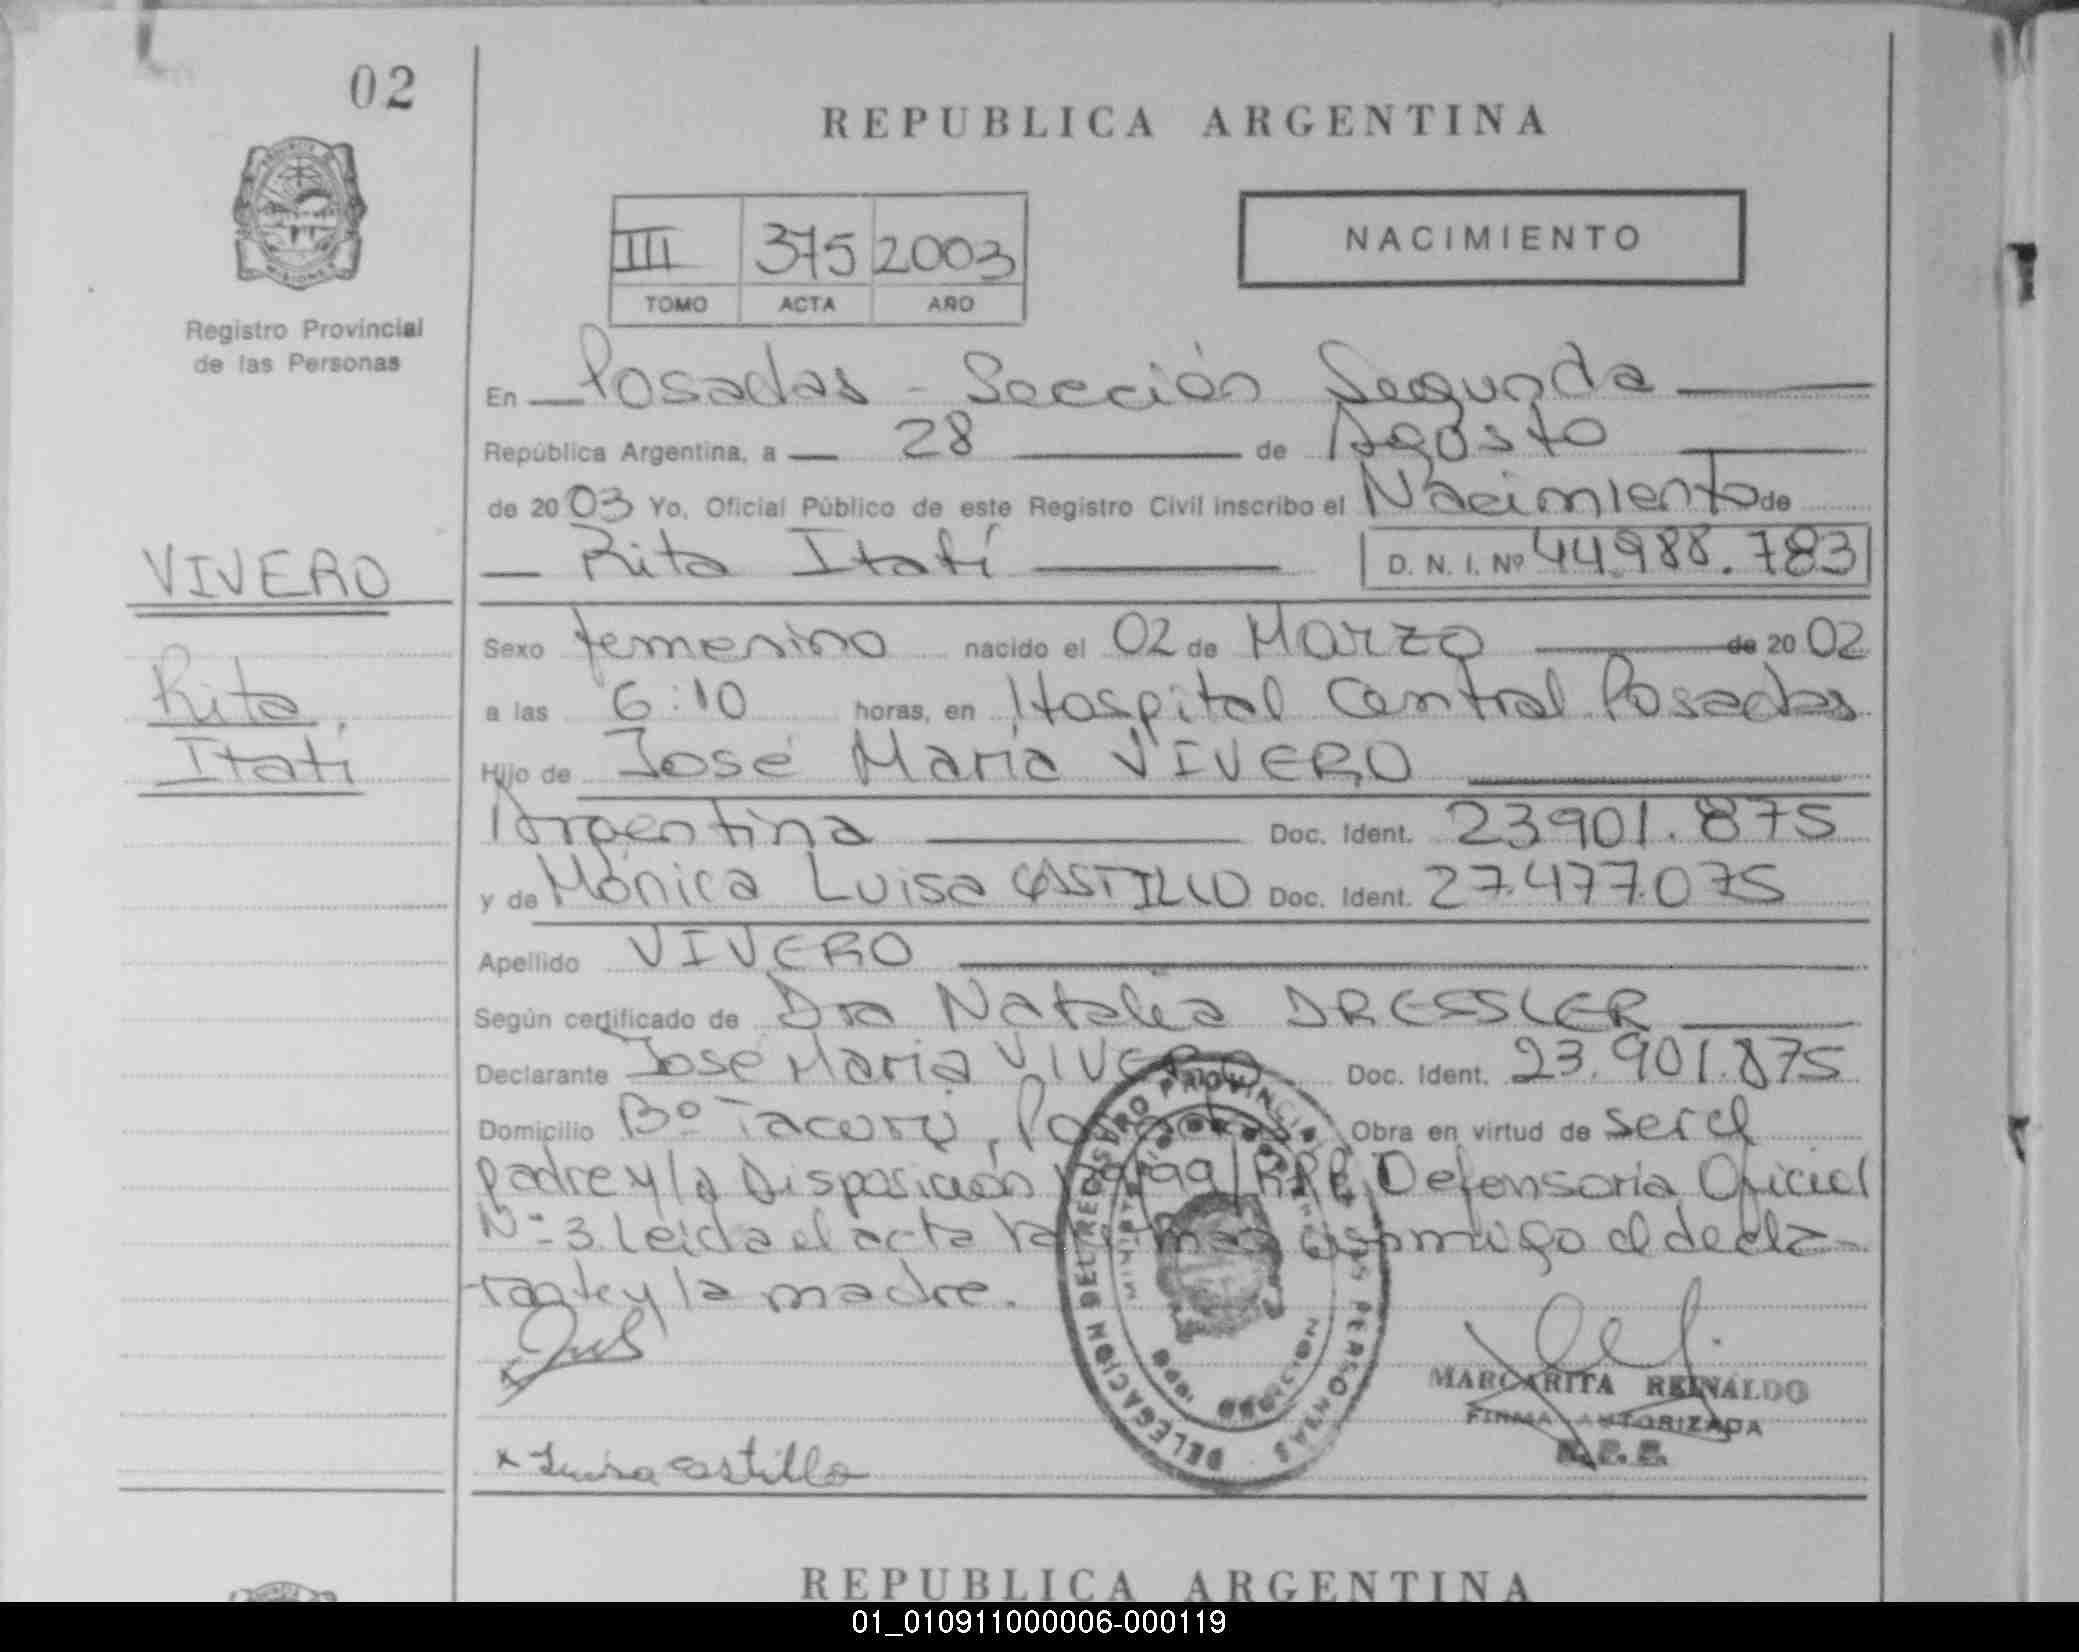 02
REPUBLICA ARGENTINA
III 375 2003
TOMO ACTA AÑO
NACIMIENTO
Registro Provincial
de las Personas
En Posadas - Sección Segunda
República Argentina, a 28 de Agosto
de 2003 Yo, Oficial Público de este Registro Civil inscribo el Nacimiento de
Rita Itatí D. N. I. Nº 44.988.783
VIVERO
Rita
Itatí
Sexo femenino nacido el 02 de Marzo de 2002
a las 6:10 horas, en Hospital Central Posadas
Hijo de José María VIVERO
Argentina Doc. Ident. 23901.875
y de Mónica Luisa CASTILLO Doc. Ident. 27.477.075
Apellido VIVERO
Según certificado de Dra Natalia DRESSLER
Declarante José María VIVERO Doc. Ident. 23.901.875
Domicilio Bº Tacurú, Posadas. Obra en virtud de ser el
padre y la Disposición Defensoría Oficial
Nº 3. Leída el acta el decla-
rante y la madre.
DELEGACION DEL REGISTRO PROVINCIAL DE LAS PERSONAS
MARGARITA REINALDO
FIRMA AUTORIZADA
R.P.P.
x Luisa Castillo
REPUBLICA ARGENTINA
01_010911000006-000119